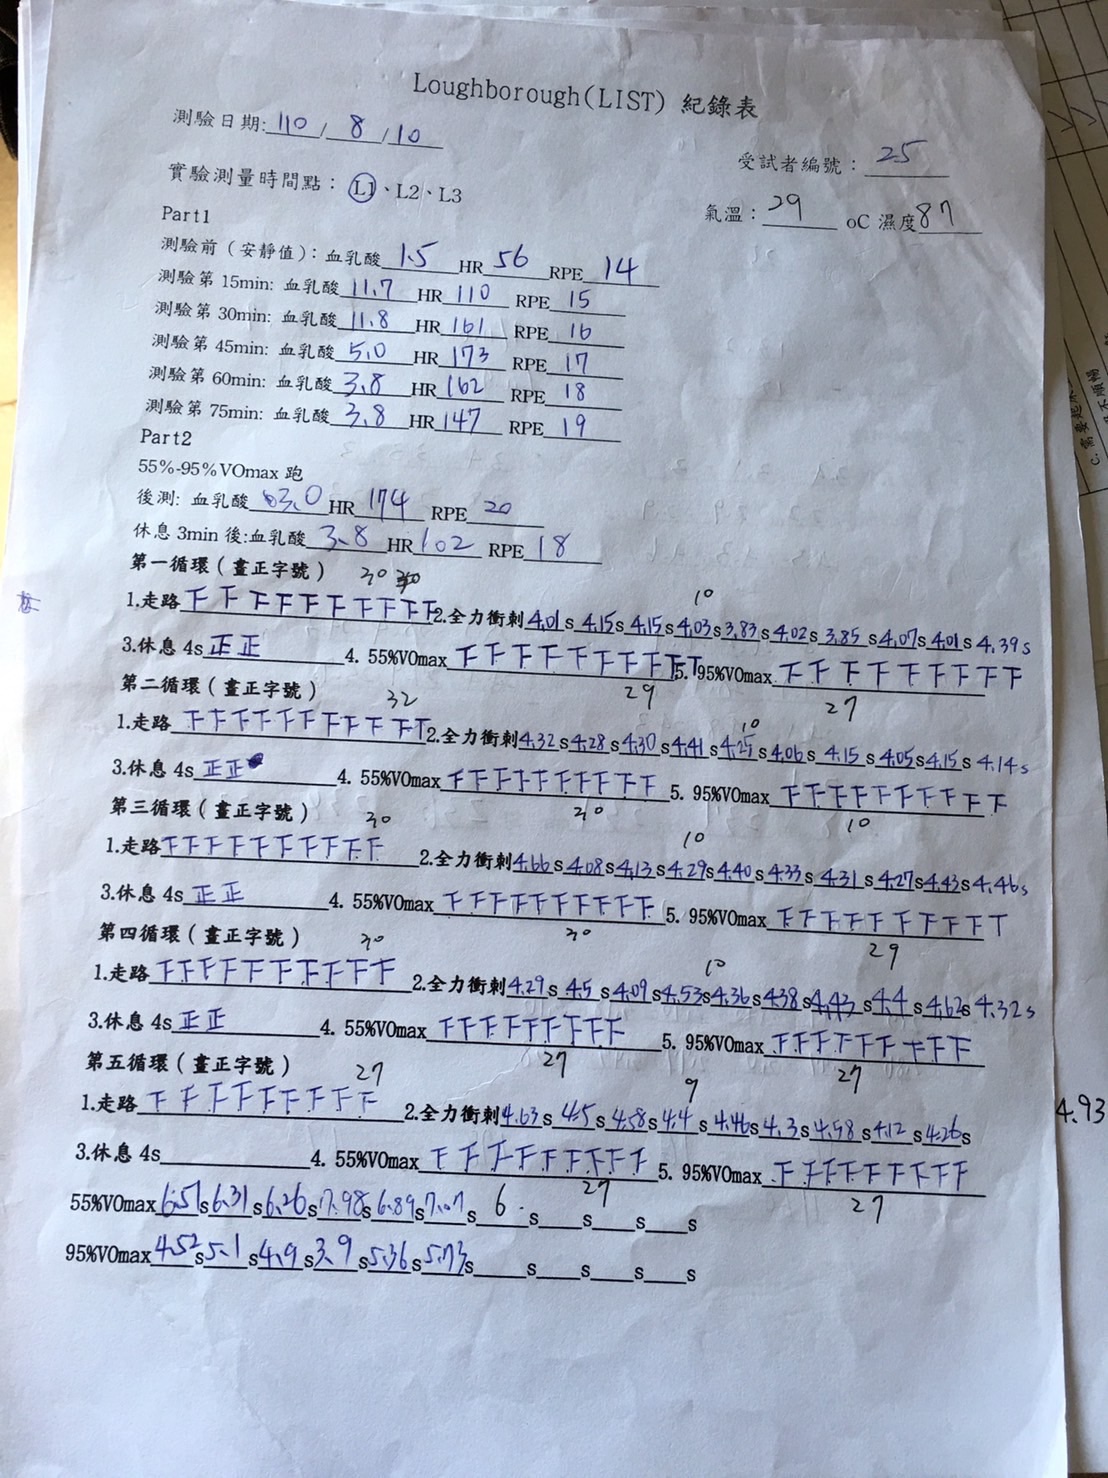 Loughborough(LIST) 紀錄表
測驗日期:110/8/10
受試者編號：25
實驗測量時間點：L1、L2、L3
氣溫：29 oC 濕度87
Part1
測驗前（安靜值）：血乳酸1.5 HR 56 RPE 14
測驗第 15min: 血乳酸11.7 HR 110 RPE 15
測驗第 30min: 血乳酸11.8 HR 161 RPE 16
測驗第 45min: 血乳酸5.0 HR 173 RPE 17
測驗第 60min: 血乳酸3.8 HR 162 RPE 18
測驗第 75min: 血乳酸3.8 HR 147 RPE 19
Part2
55%-95%VOmax 跑
後測: 血乳酸3.0 HR 174 RPE 20
休息 3min 後:血乳酸3.8 HR 102 RPE 18
第一循環（畫正字號） 30
10
1.走路下下下下下下下下下下 2.全力衝刺4.01s 4.15s 4.15s 4.03s 3.83s 4.02s 3.85s 4.07s 4.01s 4.39s
3.休息 4s 正正 4. 55%VOmax 下下下下下下下下下T 5. 95%VOmax 下下下下下下下下下
第二循環（畫正字號） 32 29 27
10
1.走路下下下下下下下下下下T 2.全力衝刺4.32s 4.28s 4.30s 4.41s 4.25s 4.06s 4.15s 4.05s 4.15s 4.14s
3.休息 4s 正正 4. 55%VOmax 下下下下下下下下下下 5. 95%VOmax 下下下下下下下下下下
第三循環（畫正字號） 30 30 10
10
1.走路下下下下下下下下下下 2.全力衝刺4.66s 4.08s 4.13s 4.29s 4.40s 4.33s 4.31s 4.27s 4.43s 4.46s
3.休息 4s 正正 4. 55%VOmax 下下下下下下下下下下 5. 95%VOmax 下下下下下下下下下T
第四循環（畫正字號） 30 30 29
10
1.走路下下下下下下下下下下 2.全力衝刺4.29s 4.5s 4.09s 4.53s 4.36s 4.38s 4.43s 4.4s 4.62s 4.32s
3.休息 4s 正正 4. 55%VOmax 下下下下下下下下下 5. 95%VOmax 下下下下下下下下下
第五循環（畫正字號） 27 27 27
9
1.走路下下下下下下下下下 2.全力衝刺4.63s 4.5s 4.58s 4.4s 4.46s 4.3s 4.58s 4.12s 4.26s
4.93
3.休息 4s 4. 55%VOmax 下下下下下下下下下 5. 95%VOmax 下下下下下下下下下
27 27
55%VOmax 6.51s 6.31s 6.26s 7.98s 6.89s 7.07s 6. s s s s
95%VOmax 4.52s 5.1s 4.9s 3.9s 5.36s 5.73s s s s s